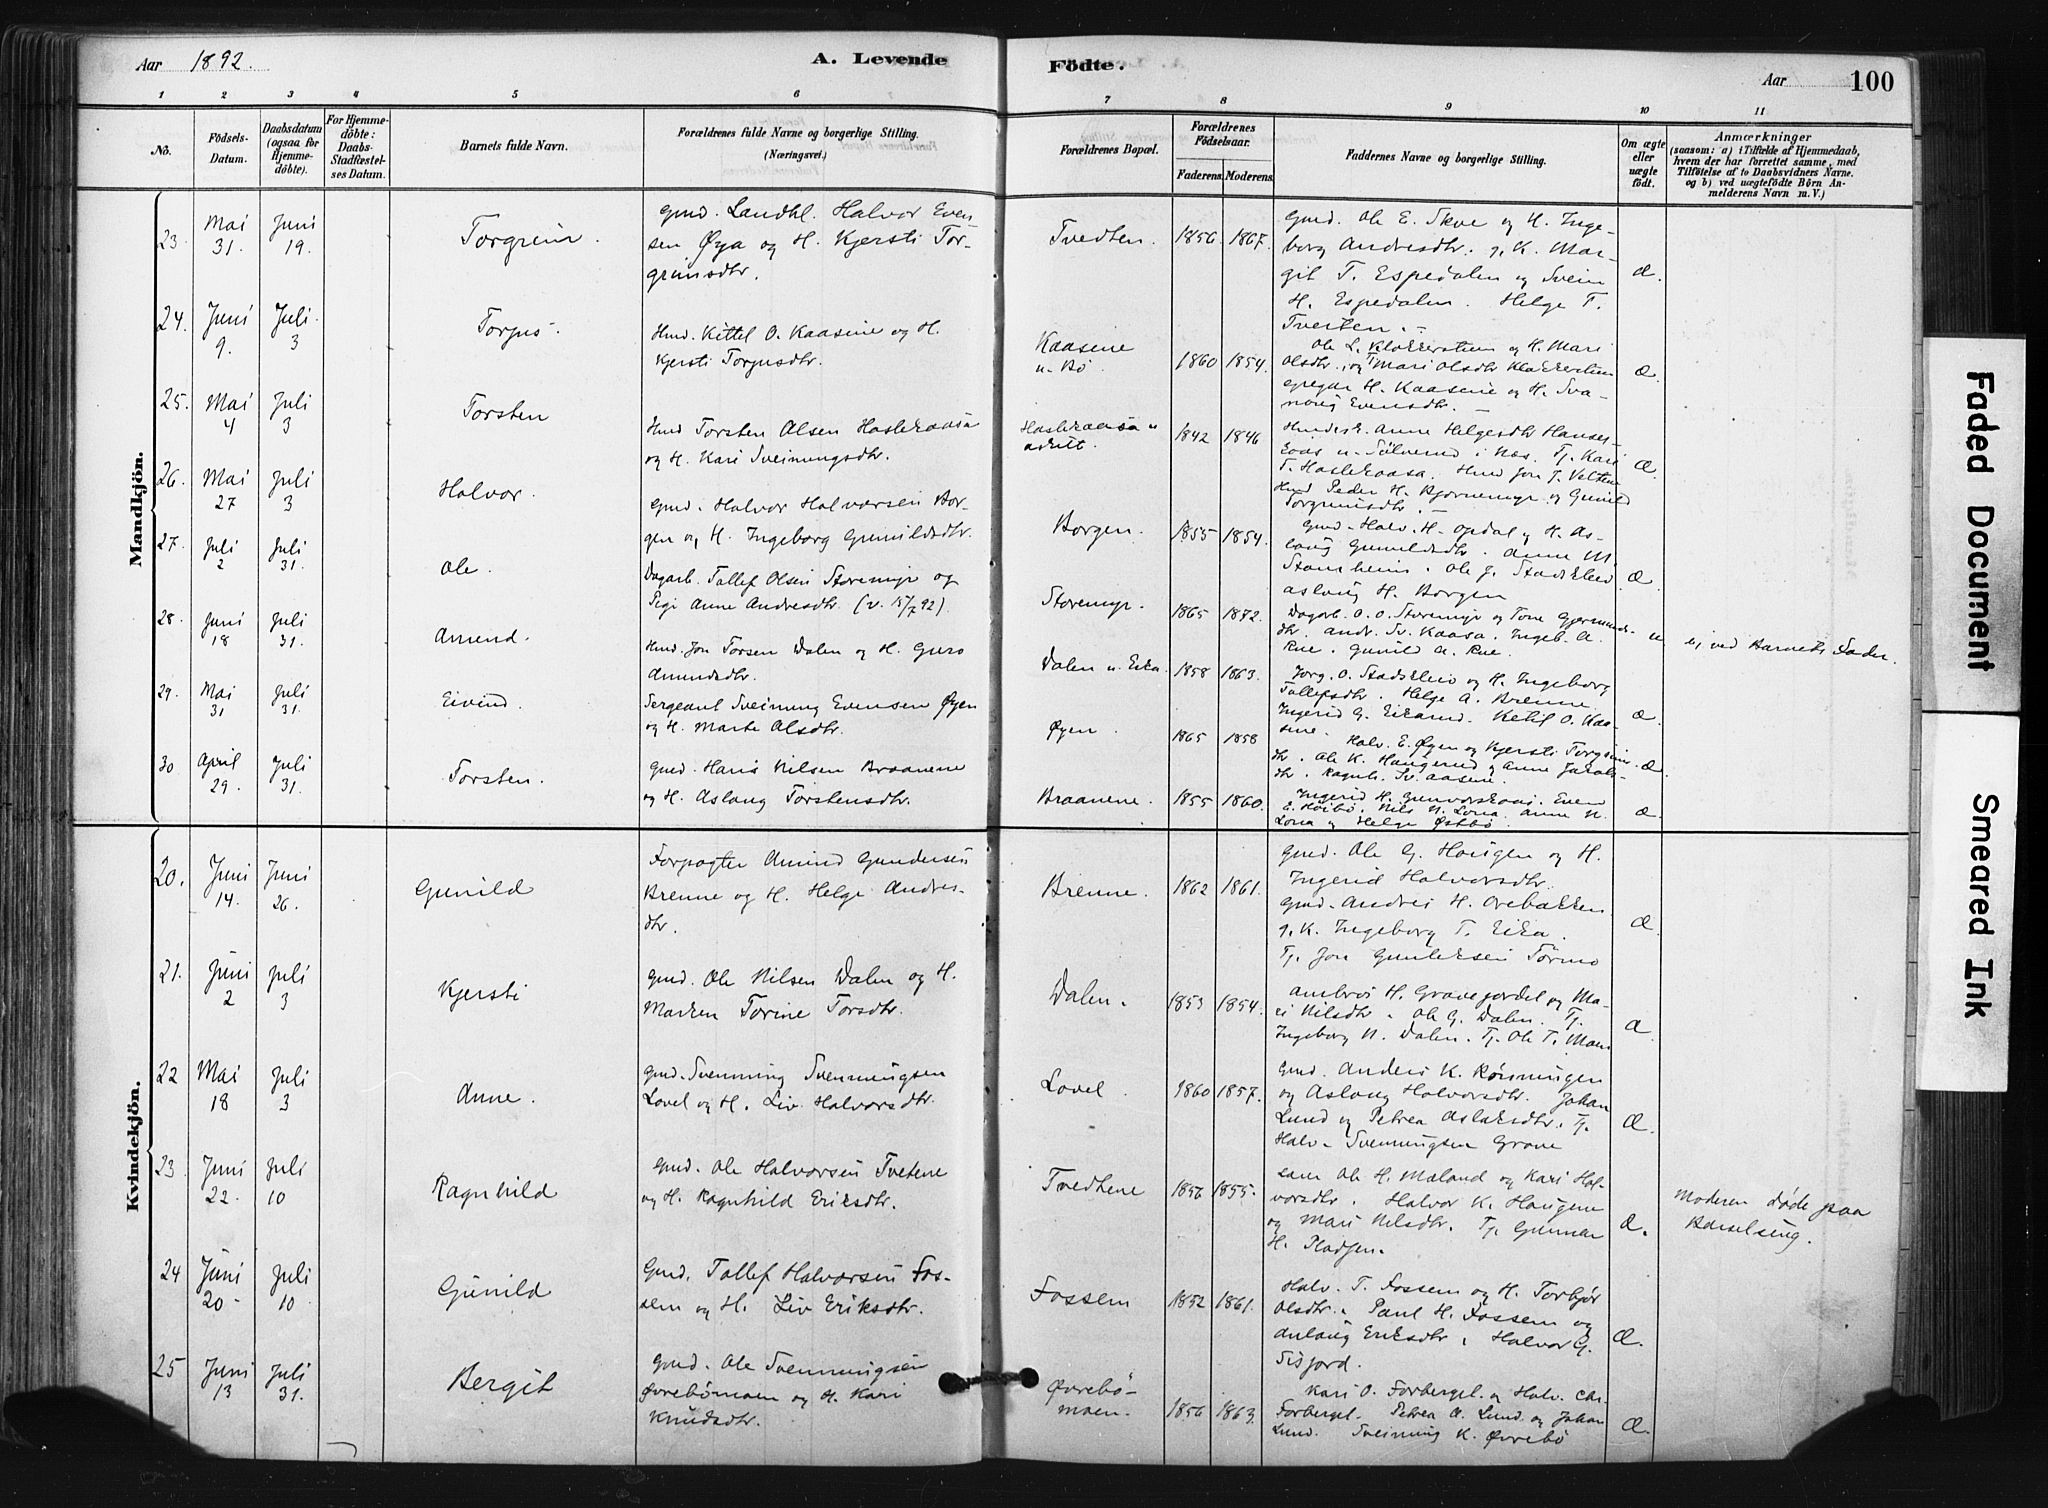 Aar 1892.
A. Levende
Födte.
Aar
100
1 2 3 4 5 6 7 8 9 10 11
No.
Födsels-
Datum.
Daabsdatum
(ogsaa for
Hjemme-
döbte).
For Hjemme-
döbte:
Daabs-
Stadfæstel-
ses Datum.
Barnets fulde Navn.
Forældrenes fulde Navne og borgerlige Stilling.
(Næringsvei.)
Forældrenes Bopæl.
Forældrenes
Födselsaar.
Faderens. Moderens.
Faddernes Navne og borgerlige Stilling.
Om ægte
eller
uægte
födt.
Anmærkninger
(saasom: a) i Tilfælde af Hjemmedaab,
hvem der har forrettet samme, med
Tilföielse af to Daabsvidners Navne.
og b) ved uægtefödte Börn An-
melderens Navn m. V.)
Mandkjön.
23.
Mai
31.
Juni
19.
Torgrim.
Gmd. Landhl. Halvor Even
sen Øya og H. Kjersti Tor-
grimsdtr.
Tvedten.
1856. 1867.
Gmd. Ole E. Skoe og H. Inge-
borg Andresdtr. g. K. Mar-
git T. Espedalen og Svein
H. Espedalen. Helge T.
Tveiten.
æ.
24.
Juni
9.
Juli
3
Torjus.
Hmd. Kittel O. Kaasene og H.
Kjersti Torjusdtr.
Kaasene
u. Bø
1860 1854.
Ole L. Klokkerstuen og H. Mari
Olsdtr., og Mari Olsdtr Klokkerstuen
Gregar H. Kaasene og H. Sva-
naug Evensdtr.
æ.
25.
Mai
4
Juli
3
Torsten
Hmd Torsten Olsen Haslekaasa
og H. Kari Sveinungsdtr.
Haslekaasa u
1842 1846
Anne Helgesdtr
i Næs. Tj. Kari
T. Haslekaasa. Hmd Jon T.
Hmd Peder H. Bjørnemyr og Gunild
Torgrimsdtr.
æ.
26.
Mai
27
Juli
3
Halvor.
Gmd. Halvor Halvorsen Bor-
gen og H. Ingeborg Gunildsdtr.
Borgen.
1855 1854.
Gmd. Halv. H. Opdal og H. As-
laug Gunildsdtr. Anne M.
Stamheim. Ole J. Stadskleiv
Aslaug H. Borgen
æ.
27.
Juli
2
Juli
31.
Ole.
Dagarb. Tallef Olsen Storemyr og
Pige Anne Andresdtr. (v. 15/7 92).
Storemyr.
1865 1872.
Dagarb. O. O. Storemyr og Tone Gjermunds-
dtr. Andr. Sv. Kaasa. Ingeb. A.
Rue. Gunild A. Rue.
u
ej ved Barnets Fader.
28.
Juni
18
Juli
31.
Amund.
Hmd. Jon Torsen Dalen og H. Guro
Amundsdtr.
Dalen u. Eika.
1858 1863.
Jørg. O. Stadskleiv og H. Ingeborg
Tallefsdtr. Helge A. Brenne
Ingerid G. Eikarud. Ketil O. Kaa-
sene.
æ.
29.
Mai
31
Juli
31.
Eivind.
Sergeant Sveinung Evensen Øyen
og H. Marte Olsdtr.
Øyen.
1865 1858
Halv. E. Øyen og Kjersti Torgrims-
dtr. Ole K. Haugerud og Anne Jarals-
dtr. Ragnh. Sv. Aasene.
æ.
30
April
29.
Juli
31.
Torsten.
Gmd. Hans Nilsen Braanene
og H. Aslaug Torstensdtr.
Braanene.
1855 1860.
Ingerid H. Gunvorskaas. Even
E. Høibø. Nils N. Lona. Anne N.
Lona og Helge Østbø.
æ.
Kvindekjön.
20.
Juni
14.
Juni
26.
Gunild
Forpagter Amund Gundersen
Brenne og H. Helge Andres-
dtr.
Brenne.
1862 1861.
Gmd. Ole G. Haugen og H.
Ingerid Halvorsdtr.
Gmd. Andres H. Orebakken
g. K. Ingeborg T. Eika.
Tj. Jon Gunleksen
æ.
21.
Juni
2
Juli
3
Kjersti
Gmd. Ole Nilsen Dalen og H.
Maren Torine Torsdtr.
Dalen.
1853 1854.
Ambros H. Gravefjordet og Ma-
ri Nilsdtr. Ole G. Dalen. Tj.
Ingeborg N. Dalen. Tj. Ole T. Moen
æ
22
Mai
18
Juli
3
Anne.
Gmd. Svenning Svenningsen
Lovel og H. Liv Halvorsdtr.
Lovel
1860 1857.
Gmd. Anders K. Rønningen
og Aslaug Halvorsdtr. Johan
Lund og Petrea Aslaksdtr. Tj.
Halv. Svenningsen Grave
æ.
23.
Juni
22.
Juli
10
Ragnhild
Gmd. Ole Halvorsen Tvetene
og H. Ragnhild Eriksdtr.
Tvedtene
1856 1855.
Lars Ole H. Maland og Kari Hal-
vorsdtr. Halvor K. Haugene
og Mari Nilsdtr. Tj. Gunnar
H. Pladsen.
æ.
Moderen døde paa
Barselseng.
24
Juni
20
Juli
10.
Gunild
Gmd. Tallef Halvorsen Fos-
sem og H. Liv Eriksdtr.
Fossem
1852 1861.
Halv. T. Fossem og H. Torbjør
Olsdtr. Paul H. Fossem og
Anlaug Eriksdtr. Halvor G.
Sisjord.
æ.
25
Juni
13
Juli
31.
Bergit
Gmd. Ole Svenningsen
Øvrebømoen og H. Kari
Knudsdtr.
Øvrebø-
moen.
1856 1863.
Kari O. Forberget og Halv. Chr.
Forberget. Petrea A. Lund og Johan
Lund. Sveinung K. Øvrebø
æ.
Faded Document
Smeared Ink